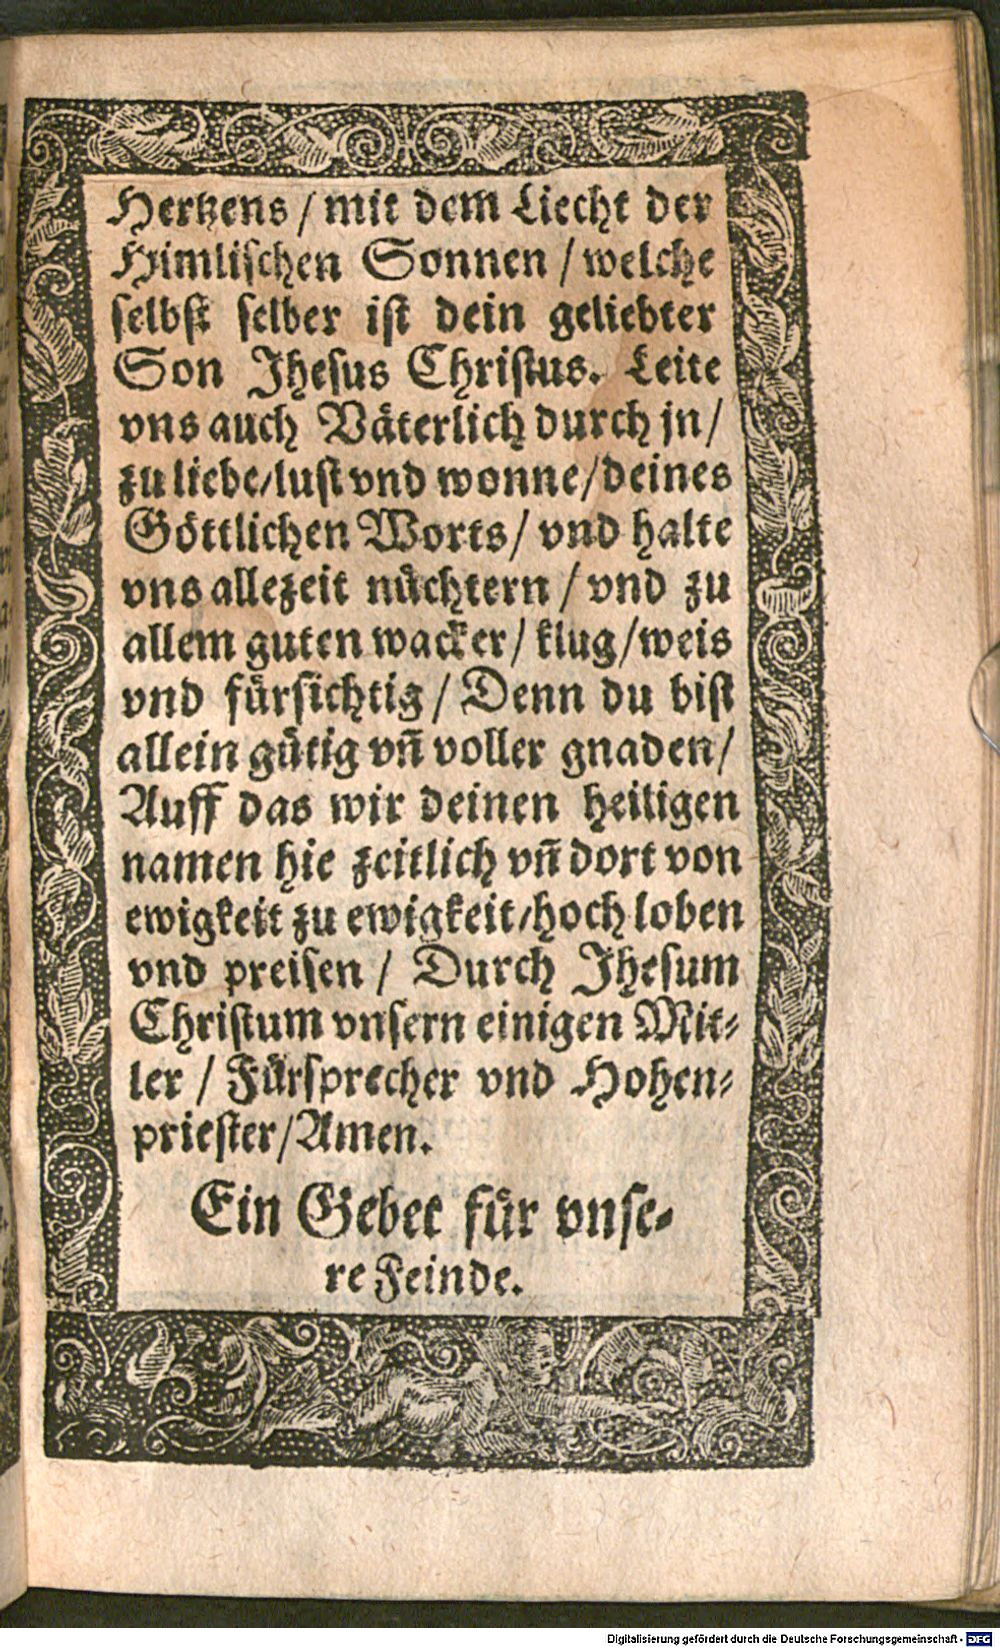 Hertzens / mit dem Liecht der
Himlischen Sonnen / welche
selbst selber ist dein geliebter
Son Jhesus Christus. Leite
vns auch Väterlich durch jn /
zu liebe / lust vnd wonne / deines
Göttlichen Worts / vnd halte
vns allezeit nüchtern / vnd zu
allem guten wacker / klug / weis
vnd fürsichtig / Denn du bist
allein gütig vñ voller gnaden /
Auff das wir deinen heiligen
namen hie zeitlich vñ dort von
ewigkeit zu ewigkeit / hoch loben
vnd preisen / Durch Jhesum
Christum vnsern einigen Mit-
ler / Fürsprecher vnd Hohen-
priester / Amen.
Ein Gebet für vnse-
re Feinde.
Digitalisierung gefördert durch die Deutsche Forschungsgemeinschaft - DFG